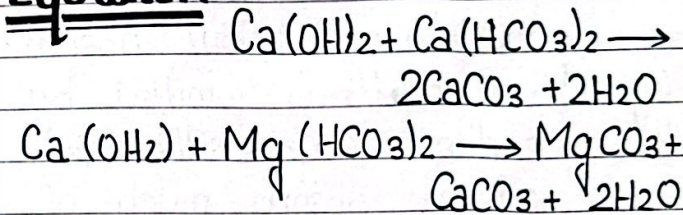 Ca(OH)2 + Ca(HCO3)2 →
2CaCO3 + 2H2O
Ca (OH2) + Mg (HCO3)2 → MgCO3 +
CaCO3 + 2H2O